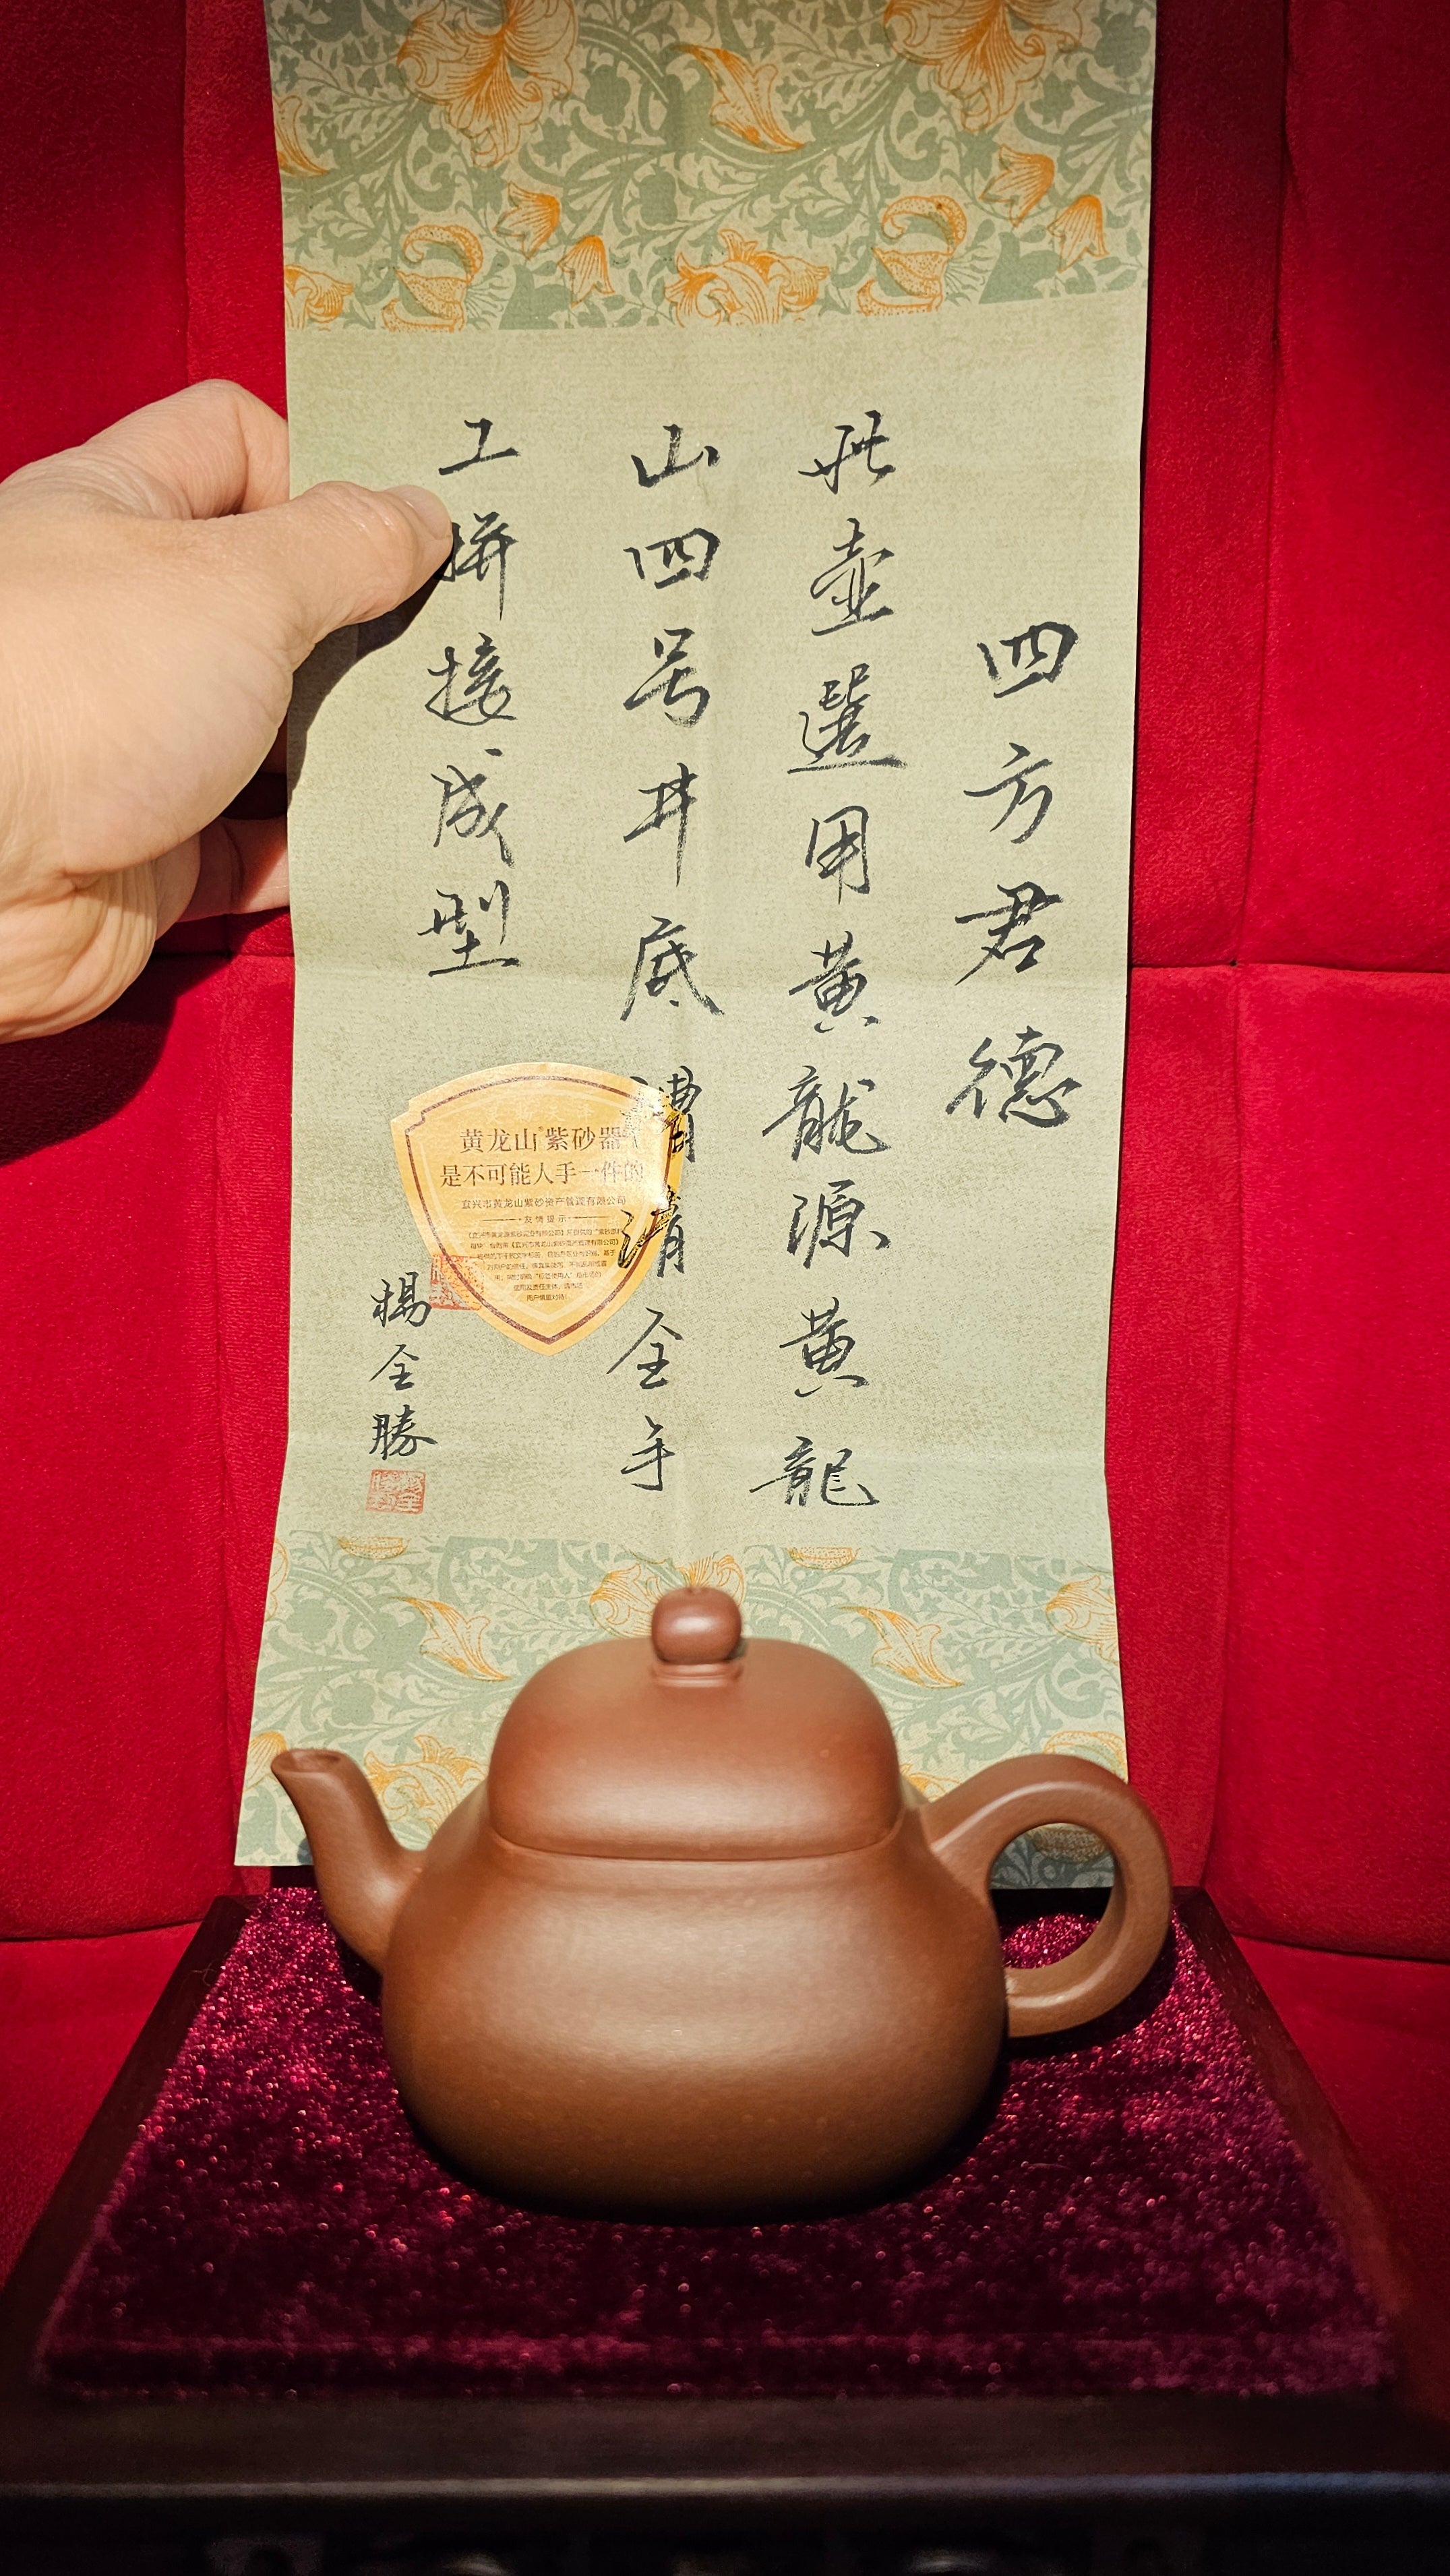 四方君德
此壺選用黄龍源黄龍
山四号井底漕清全手
工拼接成型
楊全勝
黄龙山®紫砂器
是不可能人手一件的
宜兴市黄龙山紫砂资产管理有限公司
友情提示
用户慎重对待！